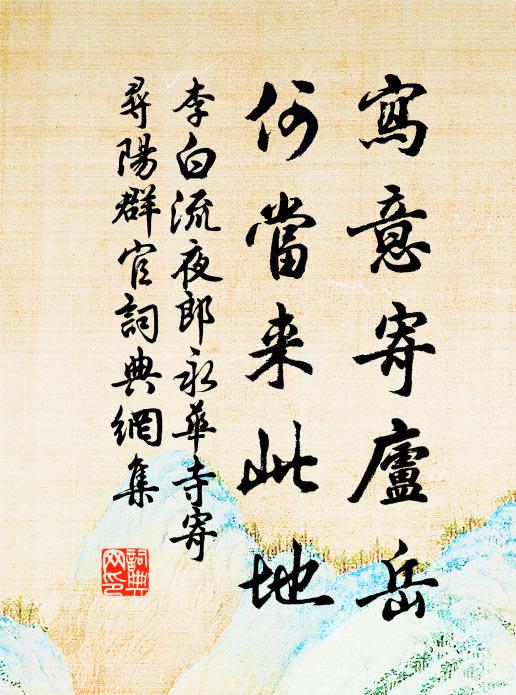 寫意寄廬岳
何當来此地
李白流夜郎永華寺寄
尋陽群官詞典網集
詞典
网印